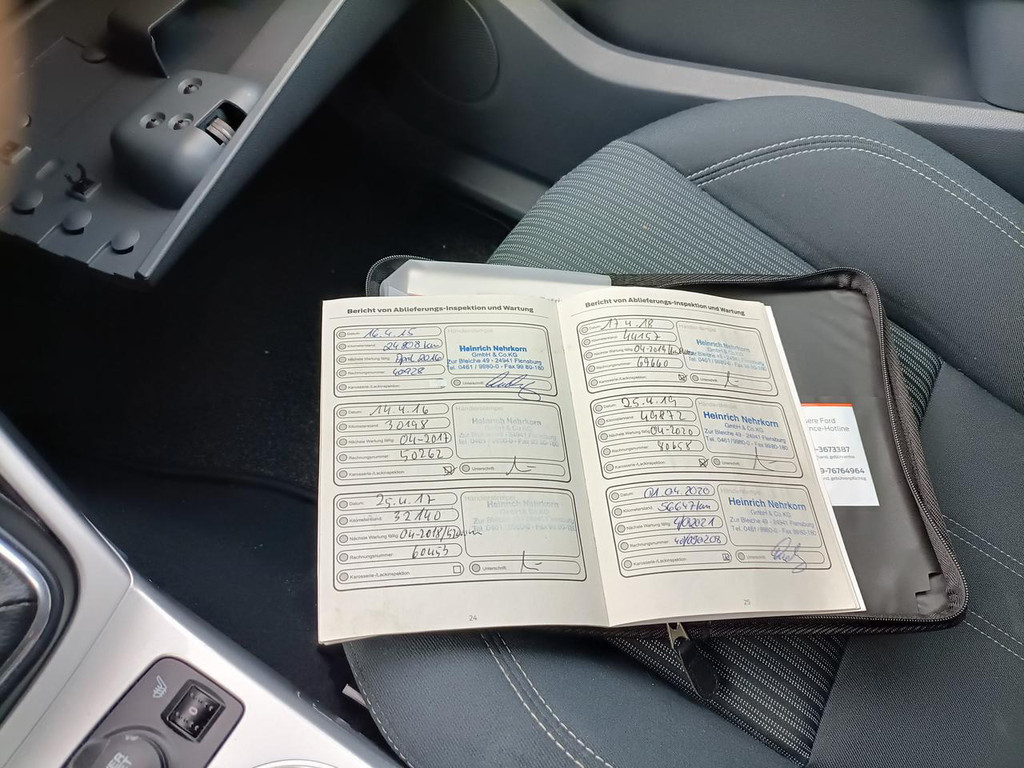 Bericht von Ablieferungs-Inspektion und Wartung
Datum: 16.4.15
Kilometerstand: 24808 km
Nächste Wartung fällig: April 2016
Rechnungsnummer: 40928
Karosserie-/Lackinspektion
Unterschrift:
Händlerstempel:
Heinrich Nehrkorn
GmbH & Co.KG
Zur Bleiche 49 - 24941 Flensburg
Tel. 0461 / 9980-0 - Fax 99 80-180
Datum: 14.4.16
Kilometerstand: 30198
Nächste Wartung fällig: 04-2017
Rechnungsnummer: 50262
Karosserie-/Lackinspektion
Unterschrift:
Händlerstempel:
Heinrich Nehrkorn
GmbH & Co.KG
Datum: 25.4.17
Kilometerstand: 32140
Nächste Wartung fällig: 04-2018
Rechnungsnummer: 60453
Karosserie-/Lackinspektion
Unterschrift:
Händlerstempel:
Heinrich Nehrkorn
GmbH & Co.KG
24
Bericht von Ablieferungs-Inspektion und Wartung
Datum: 17.4.18
Kilometerstand: 44157
Nächste Wartung fällig: 04-2019
Rechnungsnummer: 69660
Karosserie-/Lackinspektion
Unterschrift:
Heinrich Nehrkorn
GmbH & Co.KG
Datum: 25.4.19
Kilometerstand: 49872
Nächste Wartung fällig: 04-2020
Rechnungsnummer: 80658
Karosserie-/Lackinspektion
Unterschrift:
Heinrich Nehrkorn
GmbH & Co.KG
Zur Bleiche 49 - 24941 Flensburg
Tel. 0461 / 9980-0 - Fax 99 80-180
Datum: 01.04.2020
Kilometerstand: 56647 km
Nächste Wartung fällig: 4/2021
Rechnungsnummer:
Karosserie-/Lackinspektion
Unterschrift:
Heinrich Nehrkorn
GmbH & Co.KG
Zur Bleiche 49 - 24941 Flensburg
Tel. 0461 / 9980-0 - Fax 99 80-180
25
Ford
-Hotline
-3673387
9-76764964